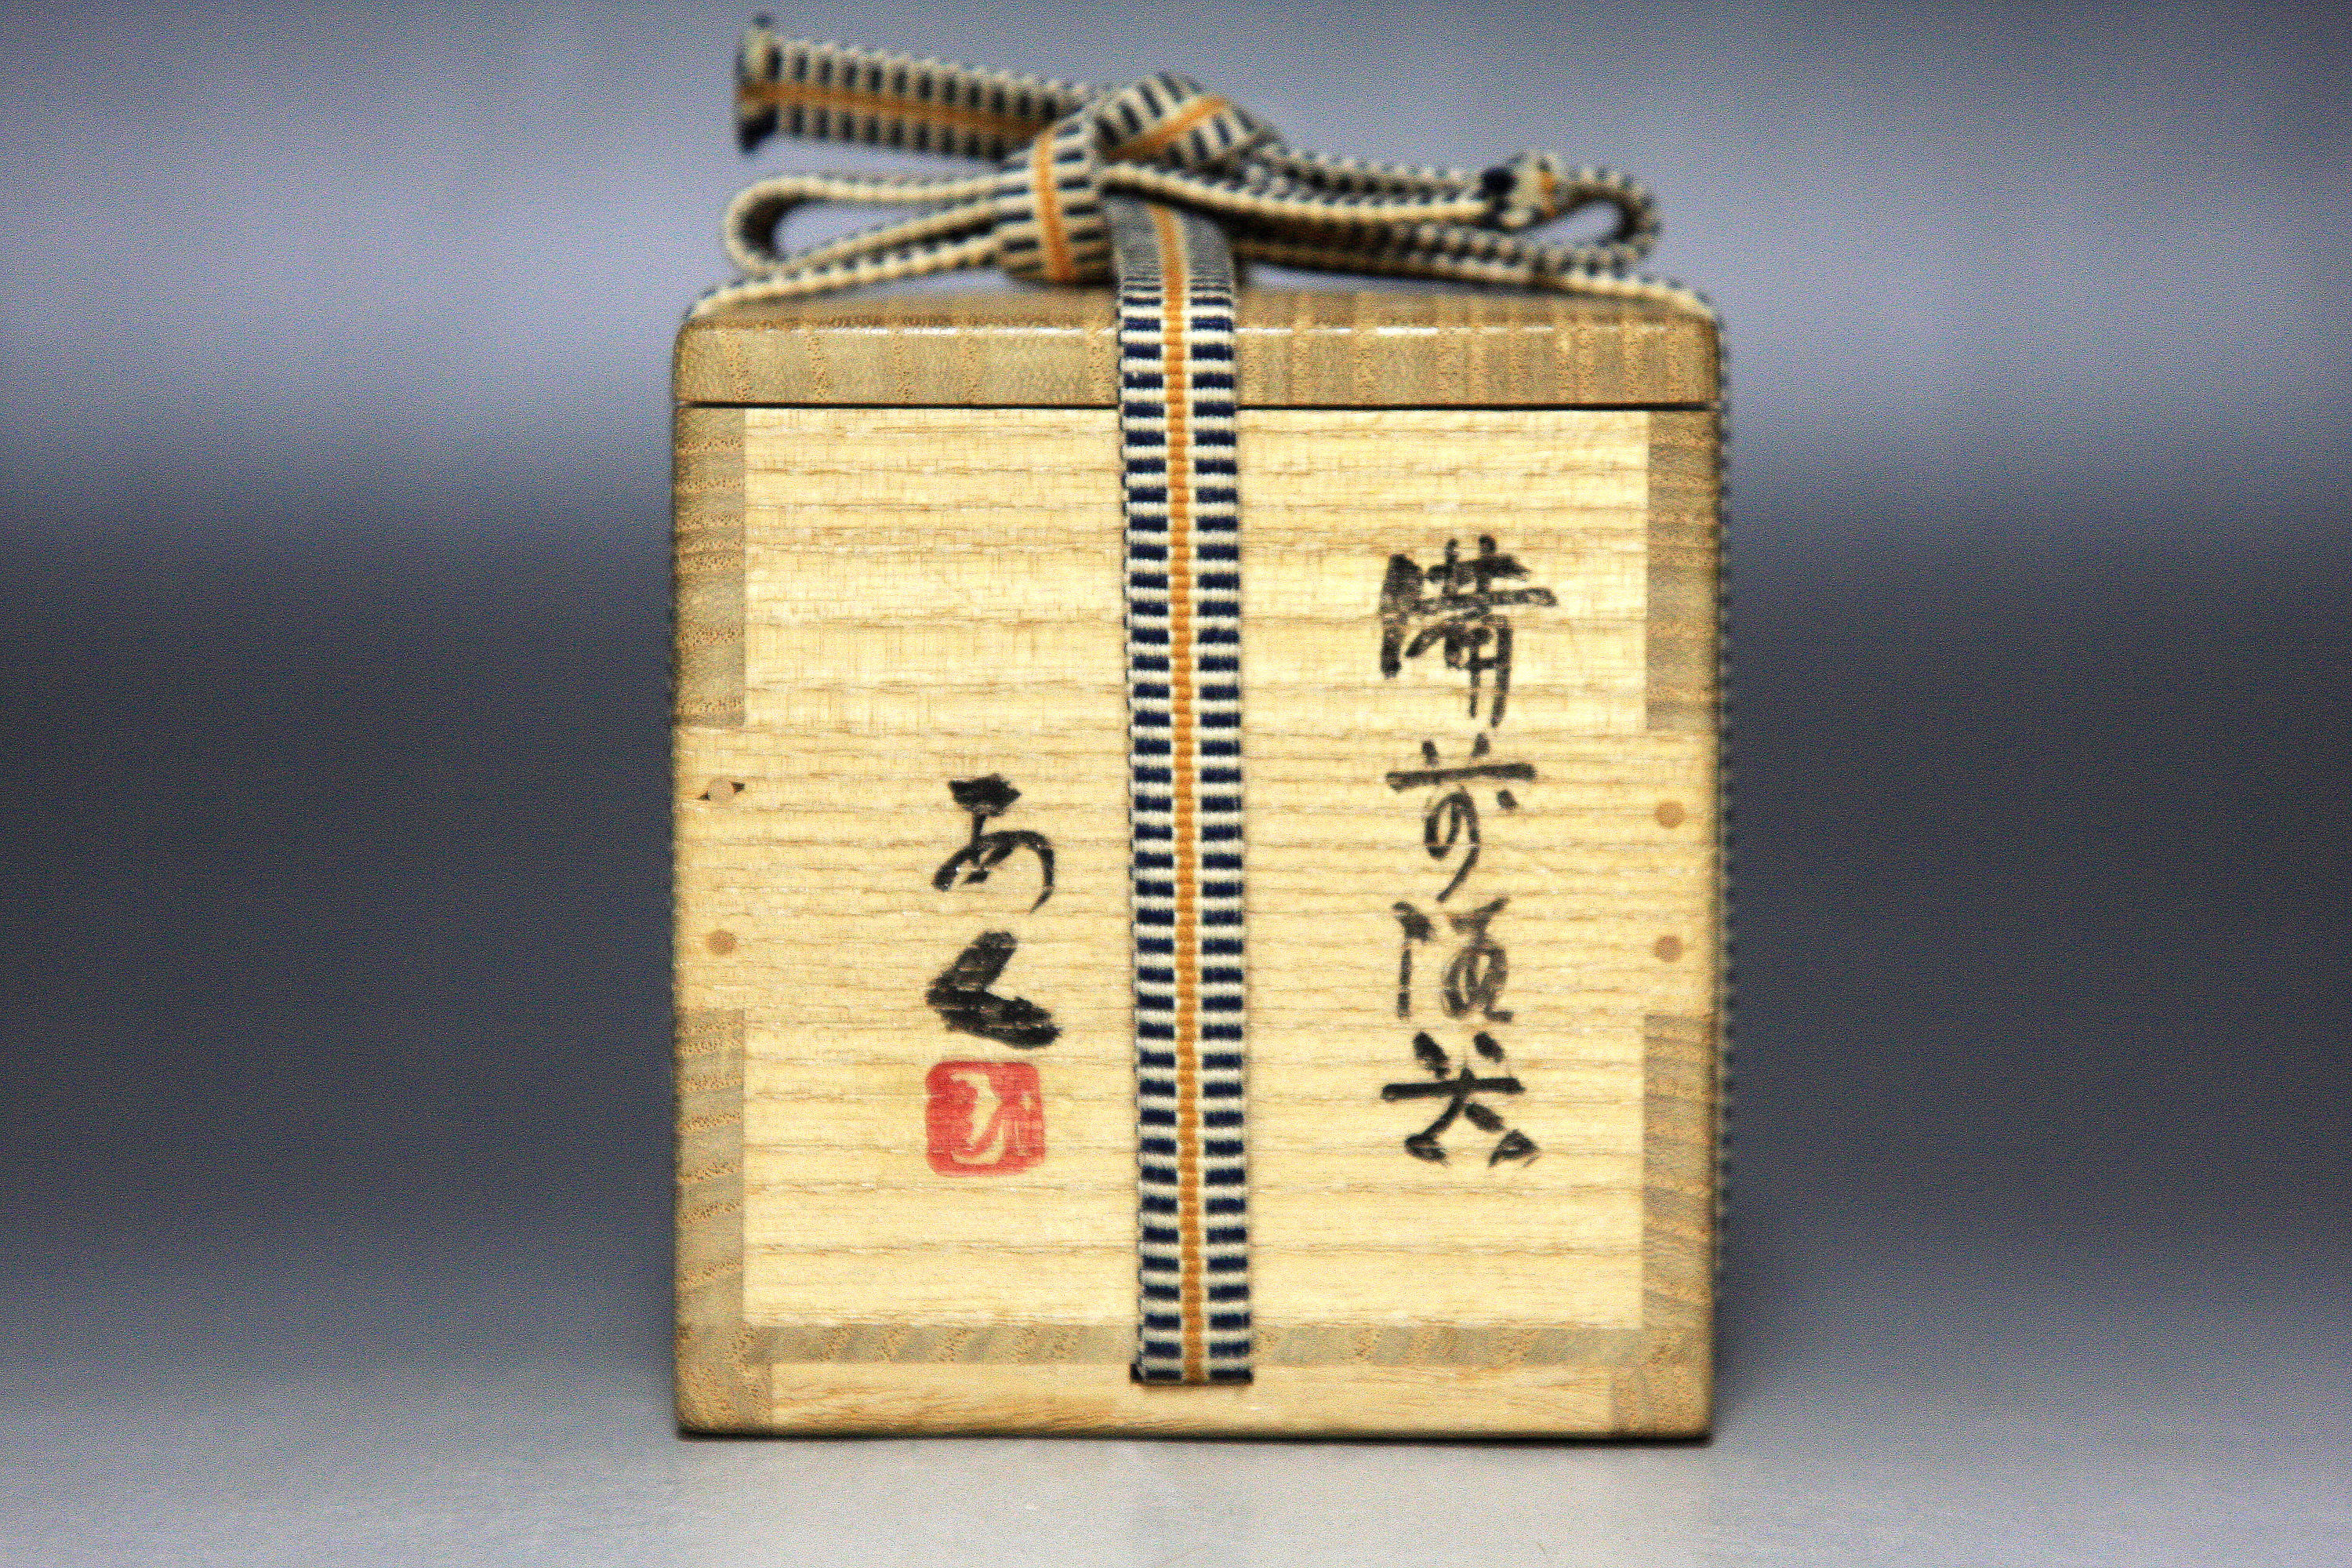 備前酒呑
あく